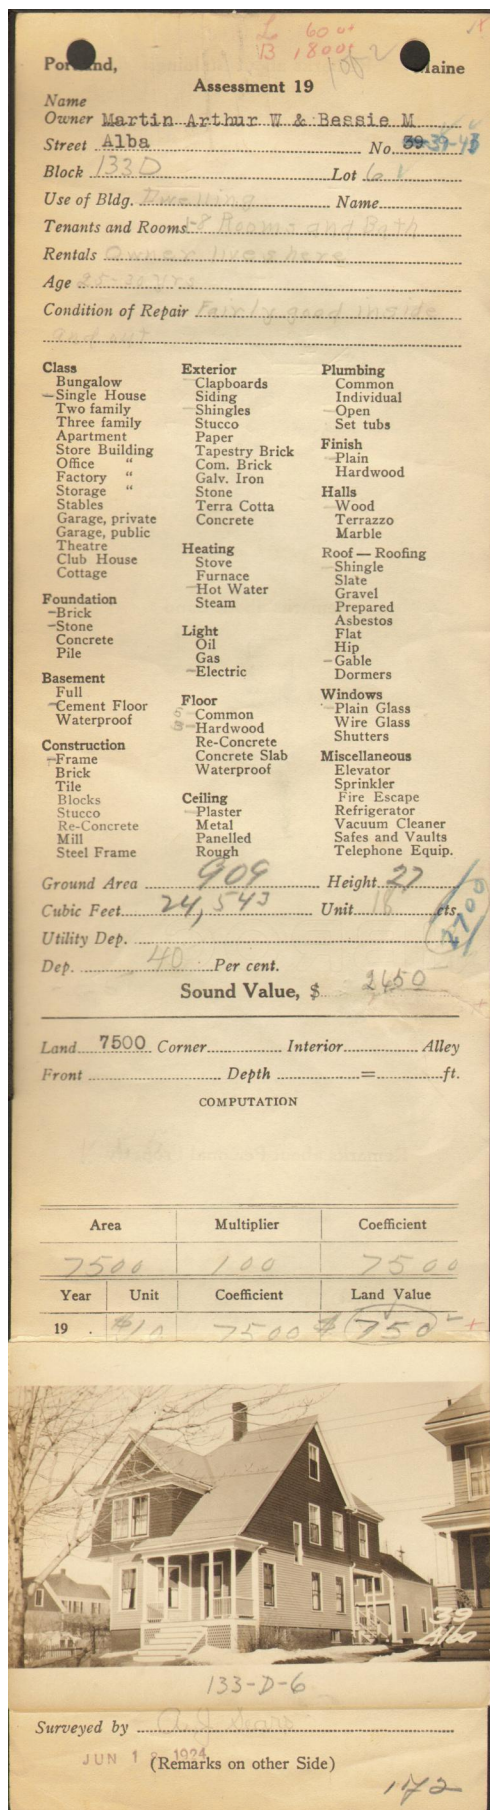 L 600
B 1800
1 of 2
Portland, Maine
Assessment 19
Name
Owner Martin Arthur W & Bessie M
Street Alba No. 39-39-43
Block 133D Lot 6
Use of Bldg. Dwelling Name
Tenants and Rooms 1-8 Rooms and Bath
Rentals Owner lives here
Age 25-30 yrs
Condition of Repair Fairly good inside
and out
Class
Bungalow
Single House
Two family
Three family
Apartment
Store Building
Office "
Factory "
Storage "
Stables
Garage, private
Garage, public
Theatre
Club House
Cottage
Foundation
Brick
Stone
Concrete
Pile
Basement
Full
Cement Floor
Waterproof
Construction
Frame
Brick
Tile
Blocks
Stucco
Re-Concrete
Mill
Steel Frame
Exterior
Clapboards
Siding
Shingles
Stucco
Paper
Tapestry Brick
Com. Brick
Galv. Iron
Stone
Terra Cotta
Concrete
Heating
Stove
Furnace
Hot Water
Steam
Light
Oil
Gas
Electric
Floor
Common
Hardwood
Re-Concrete
Concrete Slab
Waterproof
Ceiling
Plaster
Metal
Panelled
Rough
Plumbing
Common
Individual
Open
Set tubs
Finish
Plain
Hardwood
Halls
Wood
Terrazzo
Marble
Roof — Roofing
Shingle
Slate
Gravel
Prepared
Asbestos
Flat
Hip
Gable
Dormers
Windows
Plain Glass
Wire Glass
Shutters
Miscellaneous
Elevator
Sprinkler
Fire Escape
Refrigerator
Vacuum Cleaner
Safes and Vaults
Telephone Equip.
Ground Area 909 Height 27
Cubic Feet 24,543 Unit 18 cts.
2700
Utility Dep.
Dep. 40 Per cent.
Sound Value, $ 2650
Land 7500 Corner Interior Alley
Front Depth = ft.
COMPUTATION
Area Multiplier Coefficient
7500 100 7500
Year Unit Coefficient Land Value
19 $10 7500 $750
39
Alba
133-D-6
Surveyed by
JUN 1 1924
(Remarks on other Side)
172